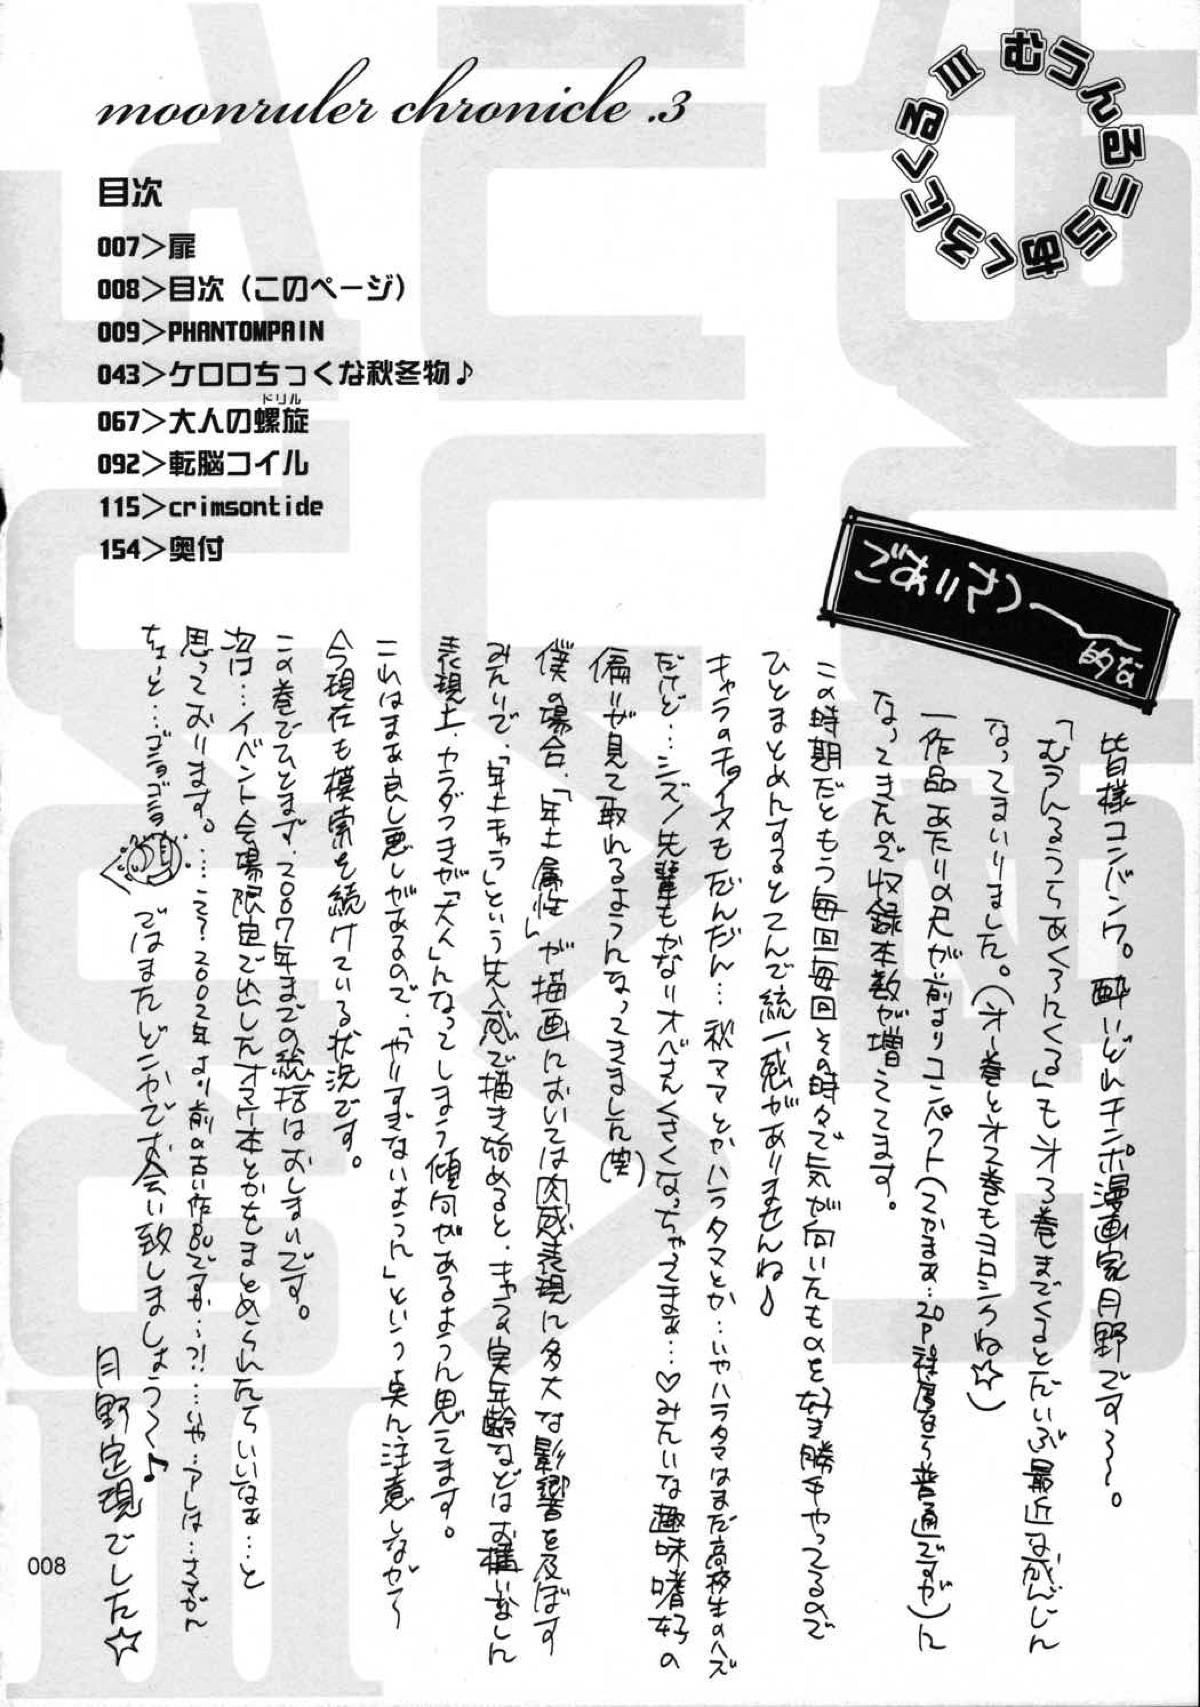 moonruler chronicle .3
むうんるうらあくろにくるIII
目次
007＞扉
008＞目次（このページ）
009＞PHANTOMPAIN
043＞ケロロちっくな秋冬物♪
ドリル
067＞大人の螺旋
092＞転脳コイル
115＞crimsontide
154＞奥付
ごあいさつー
的な
皆様コンバンワ。酔いどれチンポ漫画家月野です〜〜。
「むうんるうらあくろにくる」もオ3巻までくるとだいぶ最近なかんじに
なってまいりました。（オ1巻とオ2巻もヨロシクね☆）
一作品あたりの尺が前よりコンパクト（てかまぁ…20P程度なら普通ですが）に
なってきたので収録本数が増えてます。
この時期だともう毎回毎回その時々で気が向いたものを好き勝手やってるので
ひとまとめにするとてんで統一感がありませんね♪
キャラのチョイスもだんだん…秋ママとかハラタマとか…いやハラタマはまだ高校生のハズ
だけど…シズノ先輩もかなりオバさんくさくなっちゃってまぁ…♡みたいな趣味嗜好の
偏りが見て取れるようになってきました（笑）
僕の場合、「年上属性」が描画においては肉感表現に多大な影響を及ぼす
みたいで、「年上キャラ」という先入感で描き始めると、キャラの実年齢などはお構いなしに
表現上、カラダつきが「大人」になってしまう傾向があるように思えます。
これはまぁ良し悪しがあるので、「やりすぎないように」という点に注意しながら
今現在も模索を続けている状況です。
この巻でひとまず、2007年までの総括はおしまいです。
次は…イベント会場限定で出したオマケ本とかをまとめられたらいいなぁ…と
思っております。……え？2002年より前の古い作品ですか…？！…いや…アレは…さすがに
ちょーと…ゴニョゴニョ
ではまたどこかでお会い致しましょう〜〜♪
月野定規でした☆
008